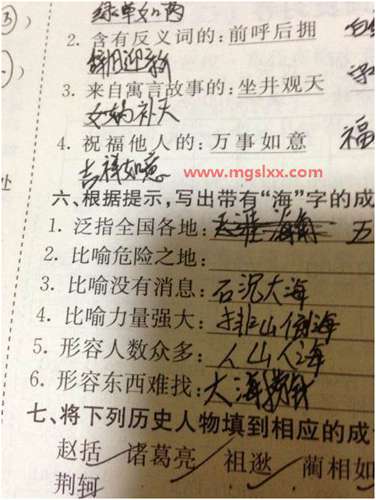 绿草如茵
2. 含有反义词的:前呼后拥
辞旧迎新
3. 来自寓言故事的:坐井观天
女娲补天
4. 祝福他人的:万事如意 福
吉祥如意
www.mgslxx.com
六、根据提示,写出带有“海”字的成
1. 泛指全国各地:天涯海角 五
2. 比喻危险之地:
3. 比喻没有消息:石沉大海
4. 比喻力量强大:排山倒海
5. 形容人数众多:人山人海
6. 形容东西难找:大海捞针
七、将下列历史人物填到相应的成
赵括 诸葛亮 祖逖 蔺相如
荆轲
处